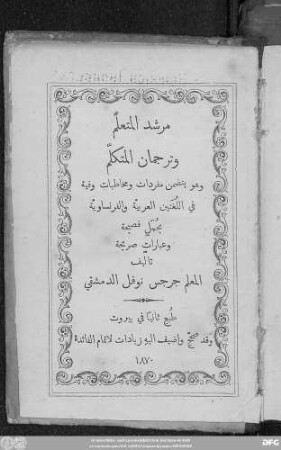 مرشد المتعلّم
وترجمان المتكلّم
وهو يتضمن مفردات ومخاطبات وفية
في اللغتين العربيّة والفرنساويّة
بجُمَلٍ فصيحة
وعباراتٍ صريحة
تاليف
المعلم جرجس نوفل الدمشقي
طُبع ثانيًا في بيروت
وقد صُحّح واُضيف اليهِ زيادات لاتمام الفائدة
١٨٧٠
DFG